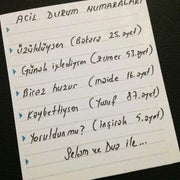 ACİL DURUM NUMARALARI
Üzüldüysen (Bakara 25. ayet)
Günah işlediysen (zumer 53. ayet)
Biraz huzur (maide 16. ayet)
Kaybettiysen (Yusuf 87. ayet)
Yoruldun mu? (inşirah 5. ayet)
Selam ve Dua ile...